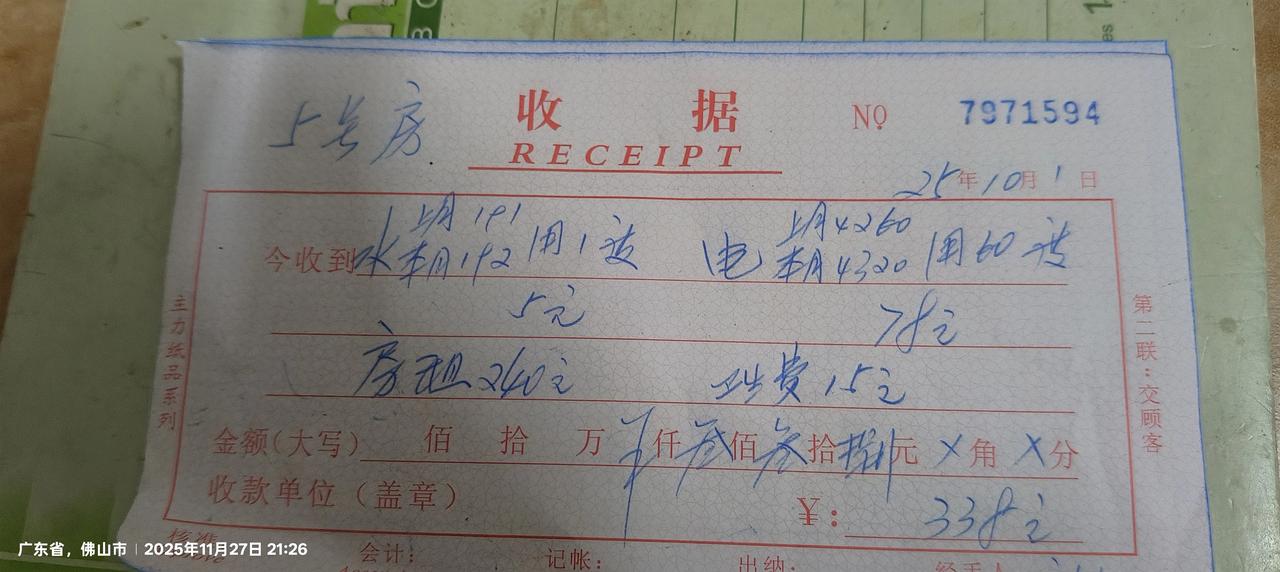 5号房 收据 No 7971594
RECEIPT
25年10月1日
上月191 上月4260
今收到水 本月192 用1度 电 本月4320 用60度
5元 78元
房租240元 卫生费15元
金额(大写) 佰 拾 万 仟叁佰叁拾捌元X角X分
收款单位(盖章) ¥: 338元
会计: 记帐: 出纳:
主力纸品系列
第二联:交顾客
广东省,佛山市 | 2025年11月27日 21:26